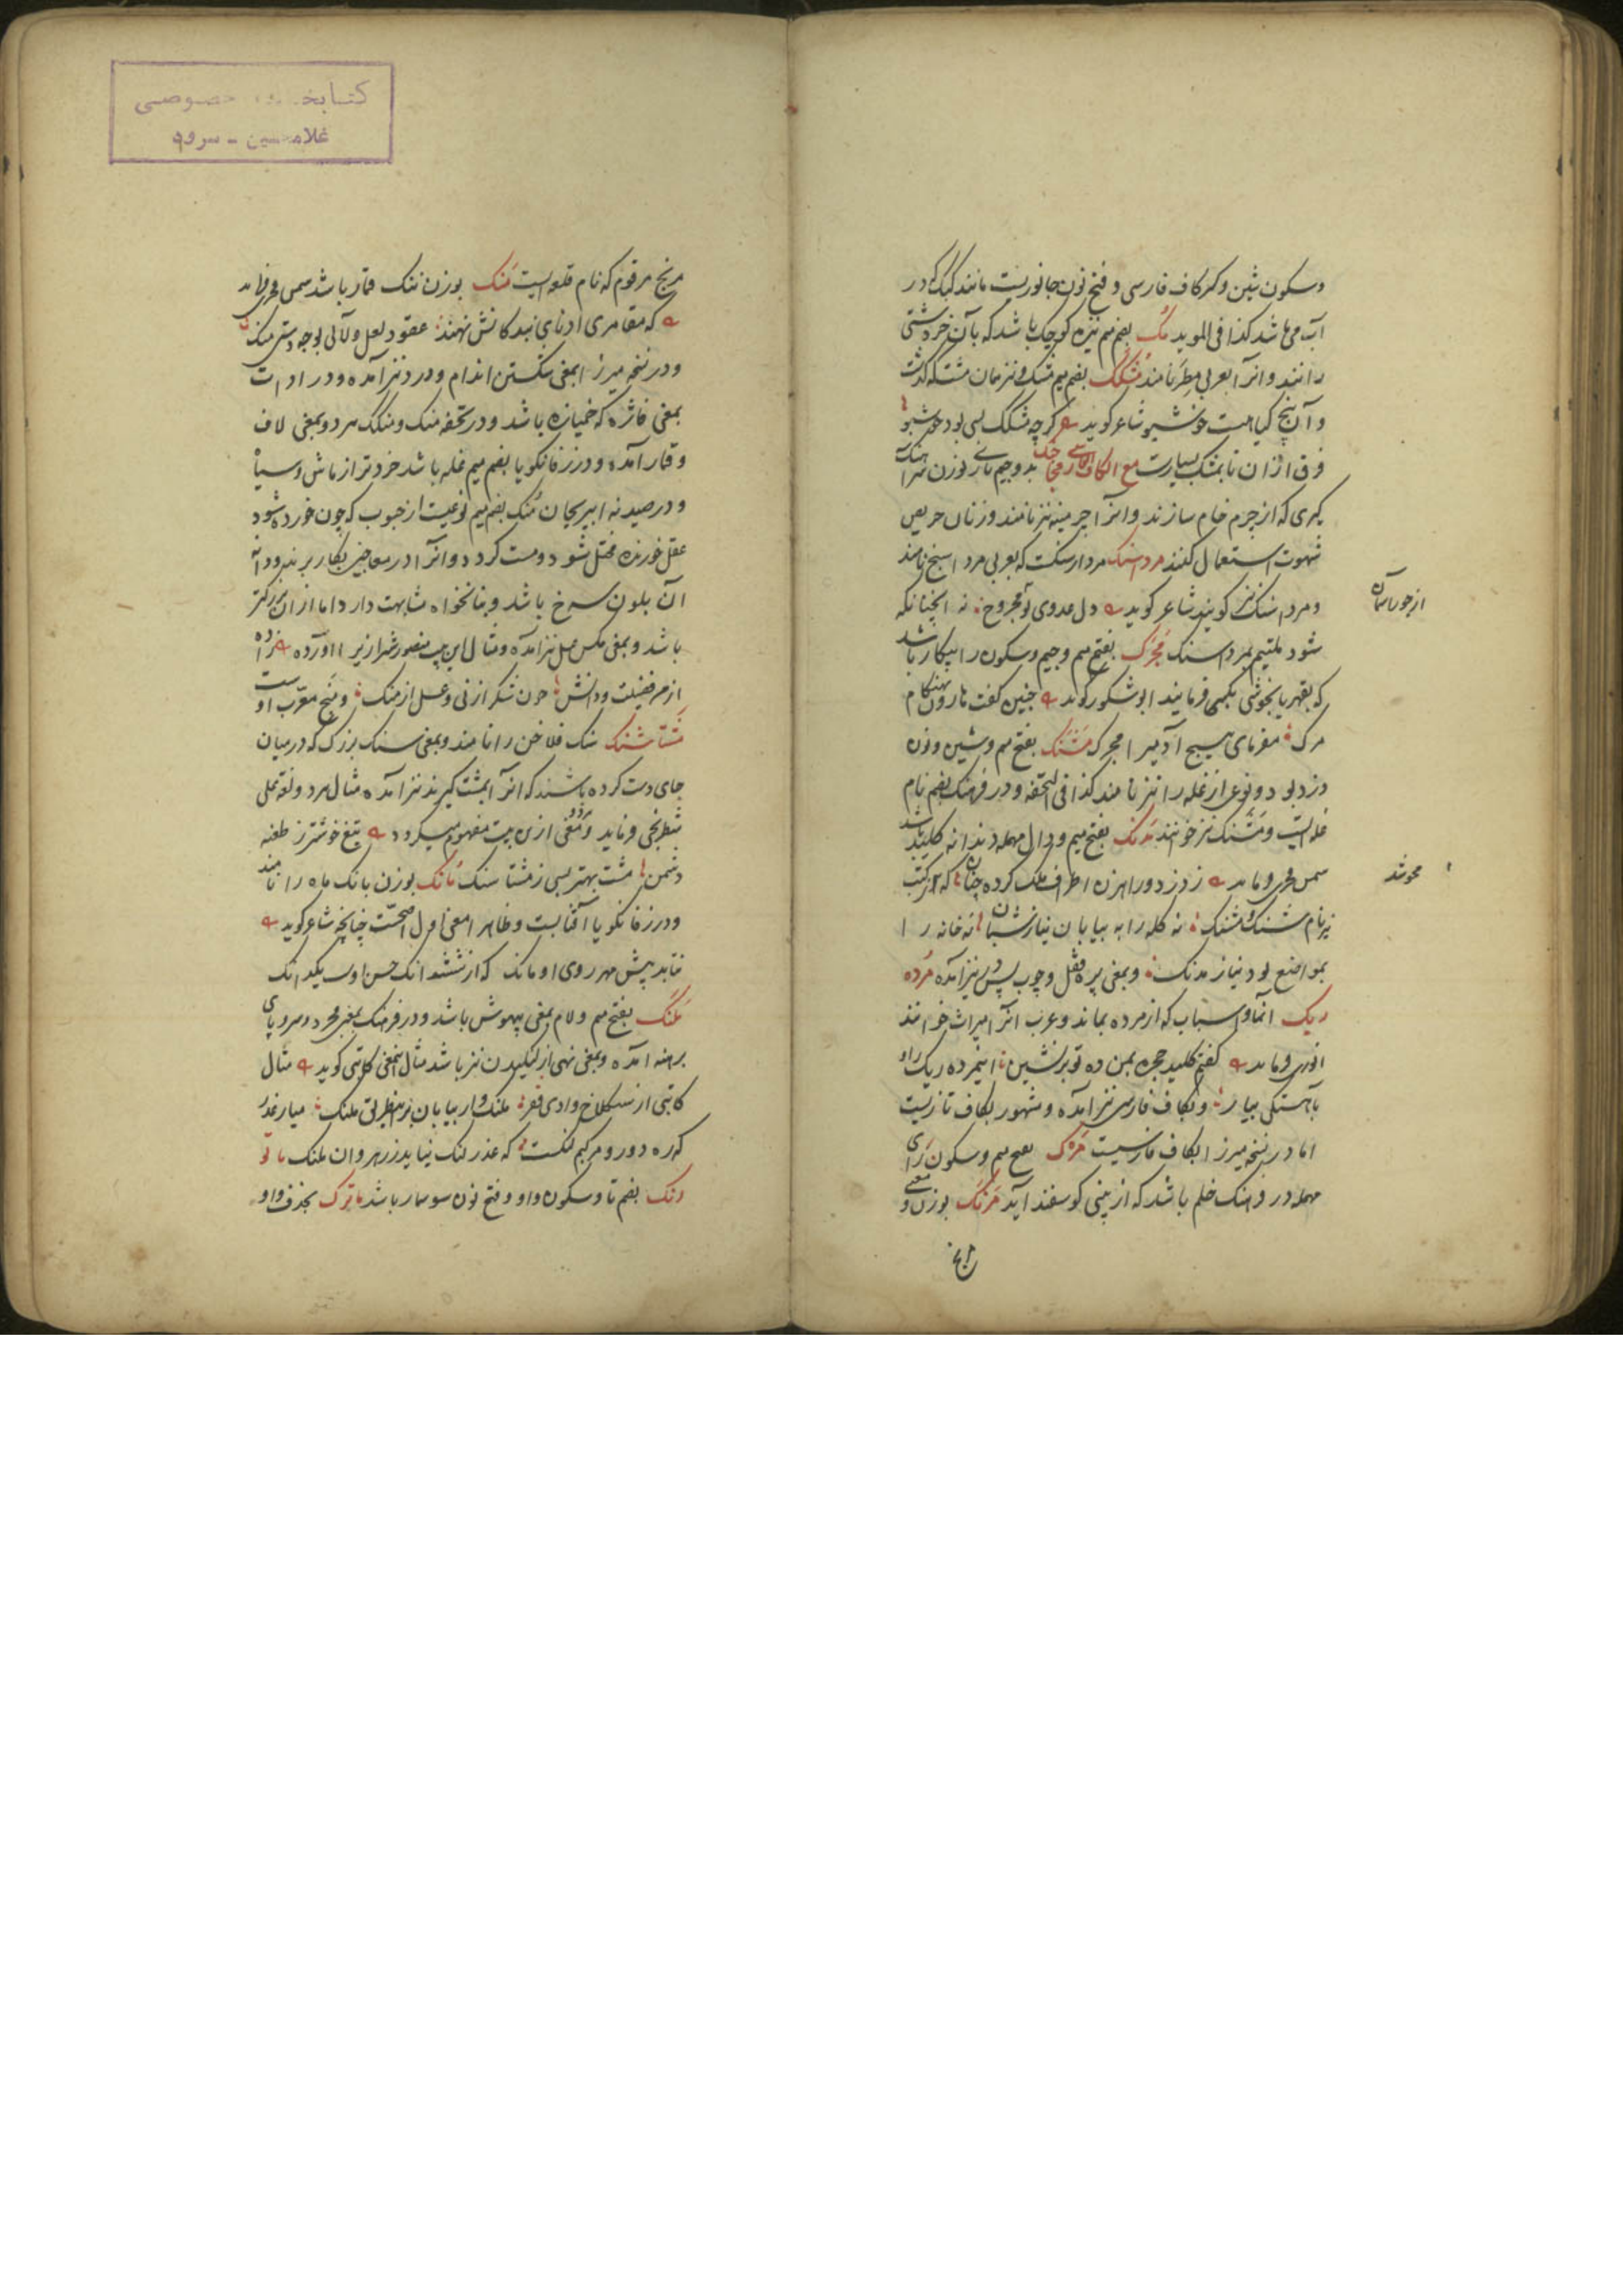 وسکون شین وکسر کاف فارسی و فتح نون جانوریست مانند کیک که در
آب می باشد کذا فی الموید مک بضم میم نیزه کوچک باشد که بآن خردشتی
رانند و انرا بعربی مطرد نامند مشکک بضم میم مشک و نیز همان مشت که گذشت
و آن بیخ گیاهیست خوشبو شاعر کوید گرچه مشکک بسی بود خوشبو
فرق ازان تا بمشک بسیارست مع الکاف الفارسی بدو جیم تازی بوزن سراهنک
کیری که از چرم خام سازند و انرا چرمینه نیز نامند و زنان حریص
شهوت استعمال کنند مرداسنک مردارسنکست که بعربی مرداسنج نامند
و مرداسنک نیز کویند شاعر کوید دل عدوی تو مجروح نه انچنانکه
از جور آسمان
شود ملتیم بمرداسنک مجرک بفتح میم وجیم وسکون را بیکار باشد
که بقهر یا بخوشی بکسی فرمایند ابوشکور کوید چنین کفت هارون بهنکام
مرک مفرمای هیچ آدمیرا مجرک مشنک بفتح میم وشین ونون
دزد بود و نوعی از غله را نیز نامند کذا فی التحفه و در فرهنک بضم نام
غله ایست و مشنک نیز خوانند مدنک بفتح میم و دال مهمله دندانه کلید باشد
شمس فخری فرماید ز دزد و راهزن اطراف ملک کرده چنان که
محو شد
نیز نام شنک و مشنک نه کله را به بیابان نیاز شبان نه خانه را
بمواضع بود نیاز مدنک و بمعنی پره قفل و چوب پس در نیز آمده مرده
ریک انما و اسباب که از مرده بماند و عرب انرا میراث خوانند
انوری فرماید کفتم کلید حجره بمن ده تو برنشین اینمرده ریک را تو
بآهستکی بیار و بکاف فارسی نیز آمده و مشهور بکاف تازیست
اما در نسخه میرزا بکاف فارسیست مرک بفتح میم وسکون رای
مهمله در فرهنک خلم باشد که از بینی کوسفند آید مرنک بوزن و معنی
مرنج مرقوم که نام قلعه ایست منک بوزن ننک قمار باشد شمس فخری فرماید
که مقامری ادنای بندکانش نهند عقود لعل ولآلی بوجه دستی منک
و در نسخه میرزا بمعنی شکستن اندام و درد نیز آمده و در ادات
بمعنی فاژه که خمیازه باشد و در تحفه منک و منکک مرد وبمعنی لاف
و قمار آمده و در زفانکویا بضم میم غله باشد خردتر از ماش وسیاه
و در صیدنه ابیریحان منک بضم میم نوعیست از حبوب که چون خورده شود
عقل خورنده مختل شود و مست کردد و انرا در معاجین بکار برند و دانه
آن بلون سرخ باشد و بنانخواه مشابهت دارد اما از آن بزرکتر
باشد و بمعنی مکس عسل نیز آمده و مثال این بیت منصور شیرازی را آورده
از هر فضیلت و دانش چون شکر ازنی وعسل از منک و منج معرب اوست
مشتاسنک سنک فلاخن را نامند و بمعنی سنک بزرک که درمیان
جای دست کرده باشند که انرا بمشت کیرند نیز آمده مثال هر دو لغة علی
شطرنجی فرماید و هر دو معنی ازین بیت مفهوم میکردد تیغ خوشتر ز طعنه
دشمن مشت بهتر بسی ز مشتاسنک مانک بوزن بانک ماه را نامند
و در زفانکویا آفتابست وظاهرا معنی اول اصحست چنانچه شاعر کوید
نتابد پیش مهر روی او مانک که از ششدانک حسن اوست یکدانک
ملنک بفتح میم و لام بمعنی بیهوش باشد و در فرهنک بمعنی مجرد و سروپای
برهنه آمده و بمعنی نهی از لنکیدن نیز باشد مثال اینمعنی کاتبی کوید مثال
کاتبی از سنکلاخ وادی فقر ملنک و از بیابان
که ره دور و مرکبم لنکست که عذر لنک نیاید ز رهروان ملنک ماتو
رنک بضم تا وسکون واو و فتح نون سوسمار باشد ماترک بحذف واو
کتابخانه خصوصی
غلامحسین - سرود